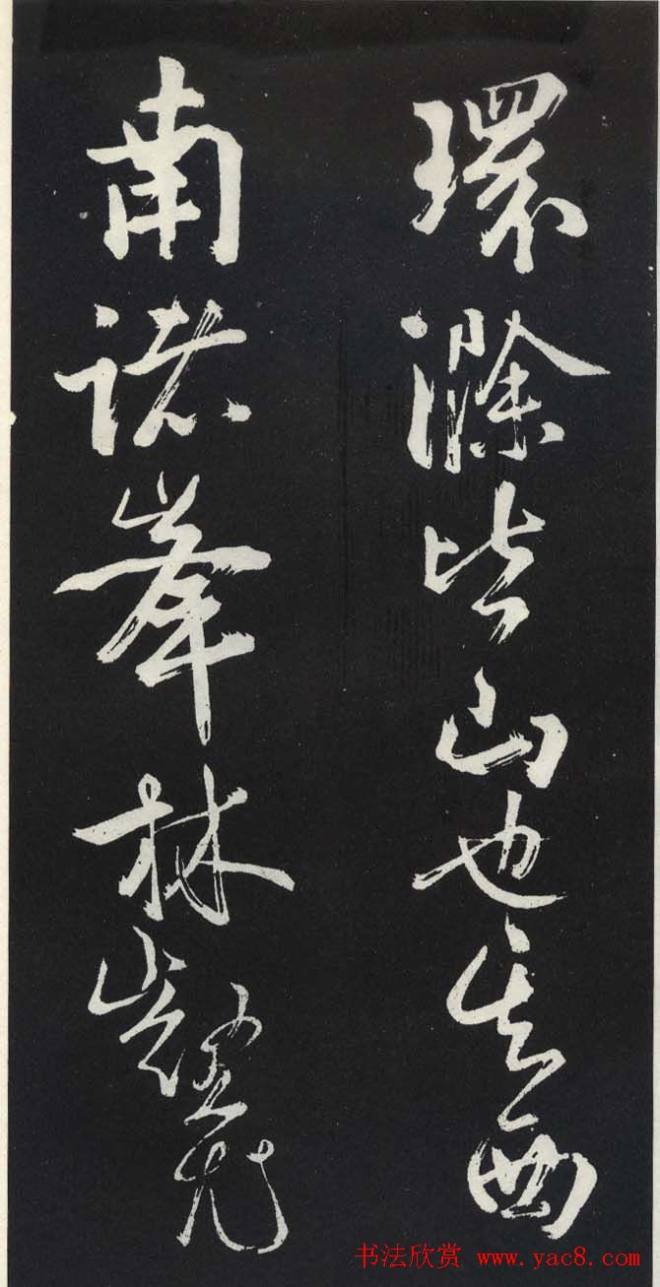 環滁皆山也其西
南諸峯林壑尤
书法欣赏 www.yac8.com